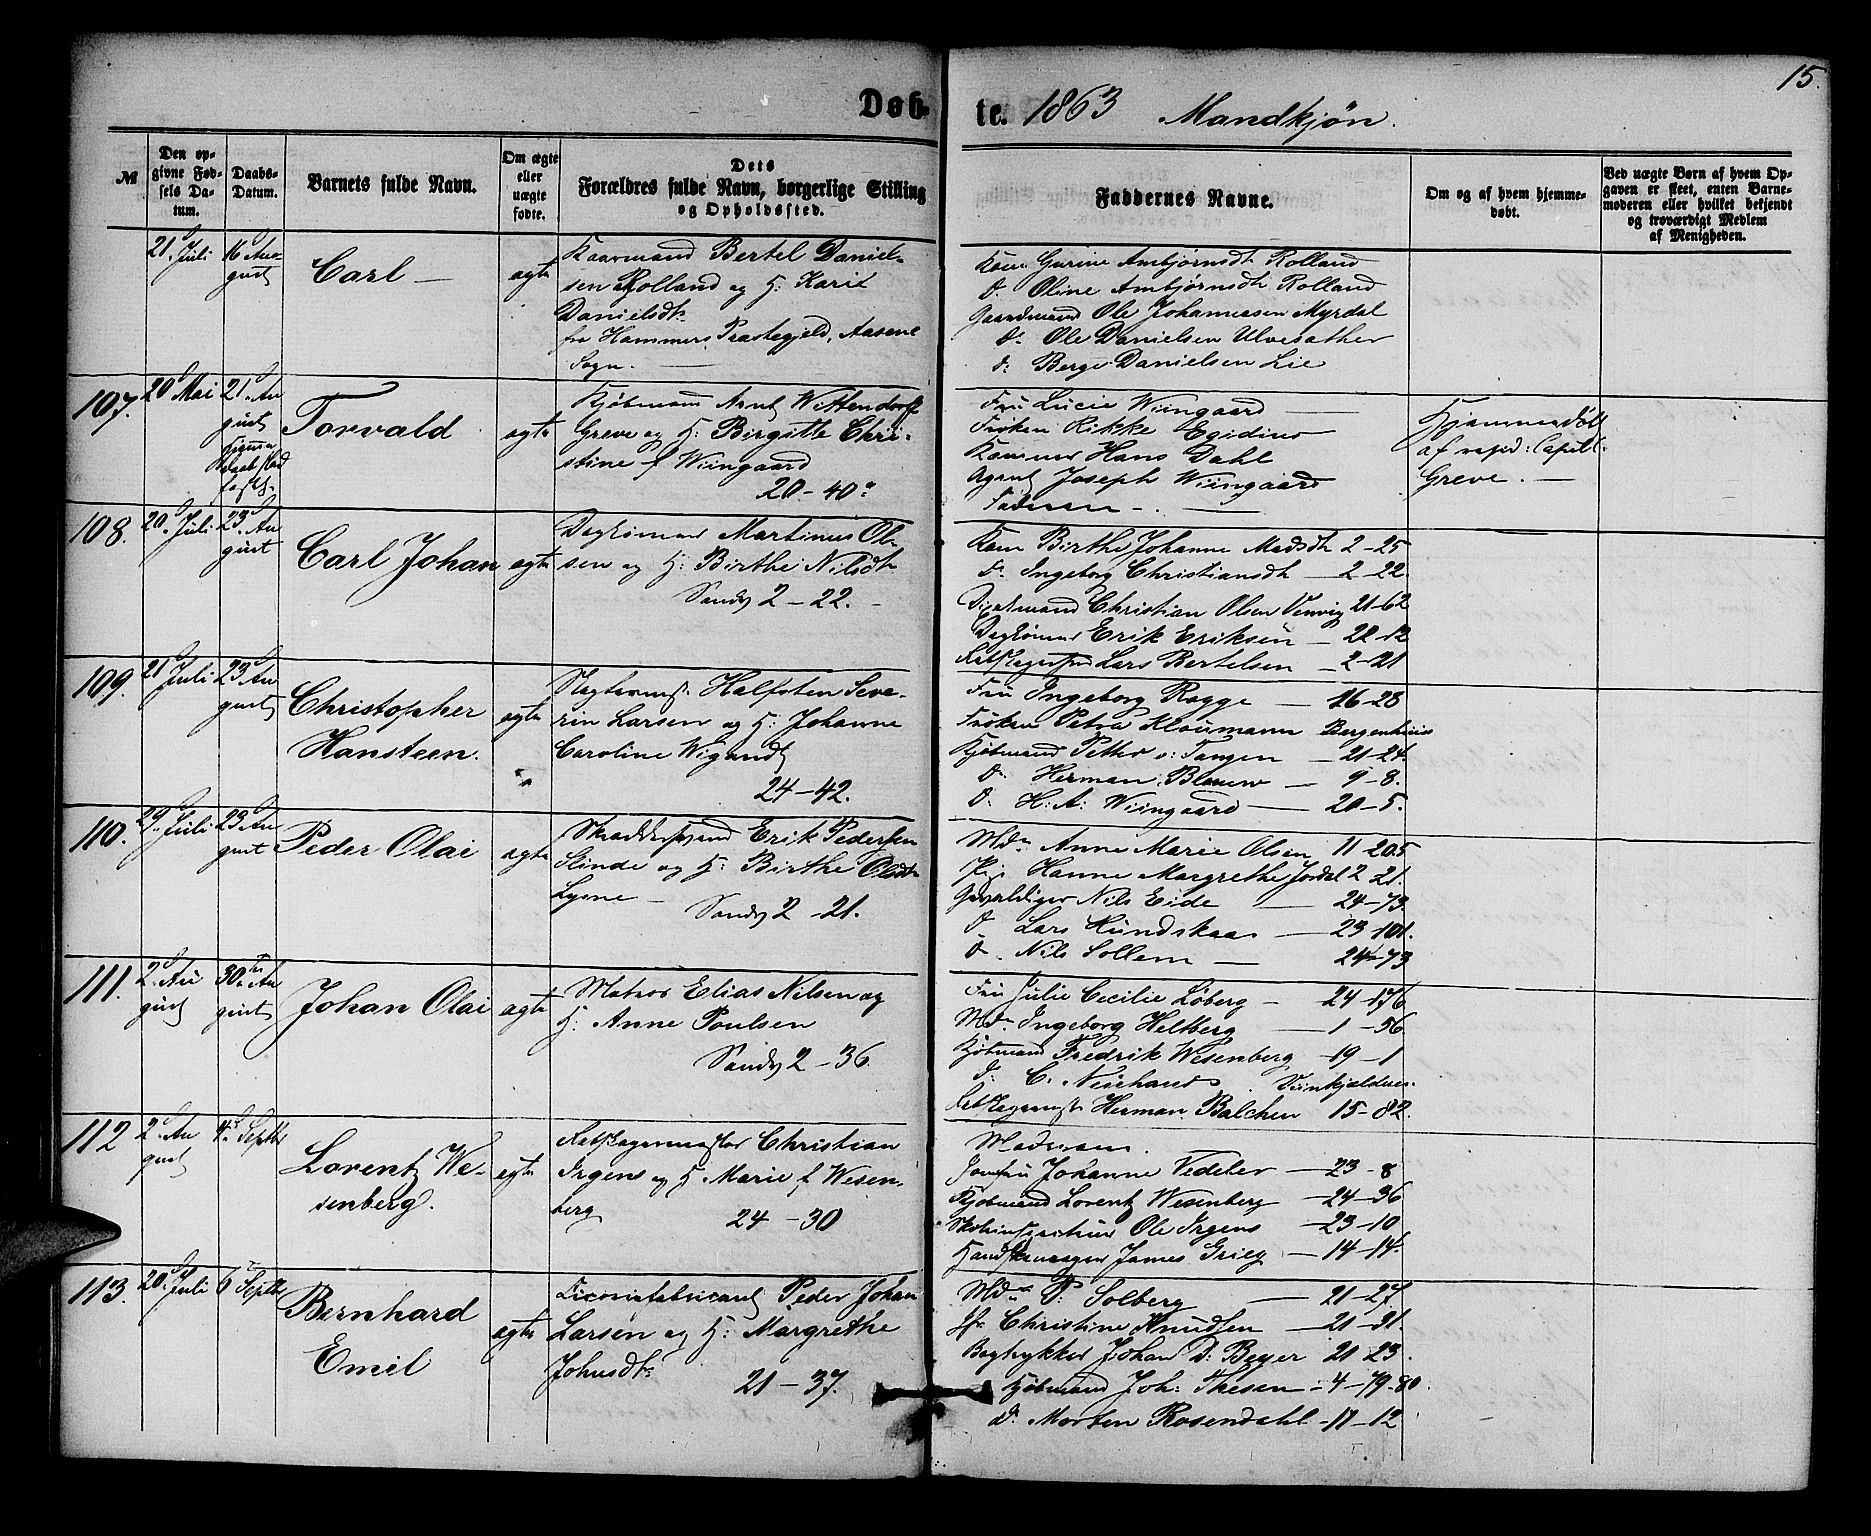 15.
Døb-
te. 1863 Mandkjøn.
№
Den op-
givne Fød-
sels Da-
tum.
Daabs-
Datum.
Barnets fulde Navn.
Om ægte
eller
uægte
fødte.
Dets
Forældres fulde Navn, borgerlige Stilling
og Opholdssted.
Faddernes Navne.
Om og af hvem hjemme-
døbt.
Ved uægte Børn af hvem Op-
gaven er skeet, enten Barne-
moderen eller hvilket bekjendt
og troværdigt Medlem
af Menigheden.
21. Juli
16 Au-
gust
Carl —
ægte
Kaarmand Bertel Daniel-
sen Rolland og H: Kari
Danielsdtr
fra Hammers Præstegjeld, Aasene
Sogn.
Kone Gurine Ambjørnsdtr Rolland
do. Oline Ambjørnsdtr Rolland
Gaardmand Ole Johannessen Myrdal
do. Ole Danielsen Ulvesæther
do. Berge Danielsen Lie
107.
20 Mai
21. Au
gust
Torvald
ægte
Kjøbmand Arnt Wittendorff
Greve og H: Birgitte Chri-
stine f Wiingaard
20-40a
Fru Lucie Wiingaard
Frøken Rikke Egidius
Hans Dahl
Agent Joseph Wiingaard
Faderen
Hjemmedøbt
af resid: Capell:
Greve.
108.
20. Juli
23. Au
gust
Carl Johan
ægte
Dagkarmand Martinus Ol-
sen og H: Birthe Nilsdtr
Sandv 2-22.
Kone Birthe Johanne Madsdtr 2-25
do. Ingeborg Christiansdtr — 2-22.
Christian Olsen Vemvig 21-62
Erik Eriksen — 22-12
Lars Bertelsen — 2-21
109.
21 Juli
23 Au
gust
Christopher
Hansteen.
ægte
Slagtermstr Halfsten Seve-
rin Larsen og H: Johanne
Caroline Wigandt
24-42.
Fru Ingeborg Rogge — 16-28
Frøken Petra Kloumann Bergenhuus
Kjøbmand Petter v: Tangen — 21-24.
do. Herman Blauw — 9-8.
do. H: A: Wiingaard — 20-5.
110.
29. Juli
23. Au
gust
Peder Olai
ægte
Skreddersvend Erik Pedersen
Skinde og H: Birthe Olsdtr
Lysne —
Sandv 2-21.
Mdm Anne Marie Olsen 11 205
Pige Hanne Margrethe Jordal 2 21.
Gevaldiger Nils Eide — 24-73.
do. Lars Hundskaar — 23-101.
do. Nils Sollem — 24-73
111.
2. Au
gust
30te Au
gust
Johan Olai
ægte
Matros Elias Nilsen og
H: Anne Poulsen
Sandv 2-36.
Fru Julie Cecilie Løberg — 24-176
Mdm Ingeborg Heltberg — 1-56.
Kjøbmand Fredrik Wesenberg -19-1
do: C. Neuhaus. Viinkjælderen.
Rebslagermstr Herman Balchen 15-82.
112
2. Au
gust
4. Septbr
Lorentz We-
senberg.
ægte
Rebslagermester Christian
Irgens og H. Marie f. Wesen-
berg
24-30
Moderen.
Jomfru Johanne Vedeler — 23-8
Kjøbmand Lorentz Wesenberg — 24-36
Ole Irgens —23-10
Handskemager James Grieg — 14-14.
113.
20. Juli
6 Septbr
Bernhard
Emil
ægte
Peder Johan
Larsen og H: Margrethe
Johnsdtr.
21-37.
Mdm P: Solberg — 21-27.
Christine Knudsen — 21-31.
Bogtrykker Johan D: Beyer 21-23.
Kjøbmand Joh: Thesen -4-79-80.
do. Morten Rosendahl -17-12